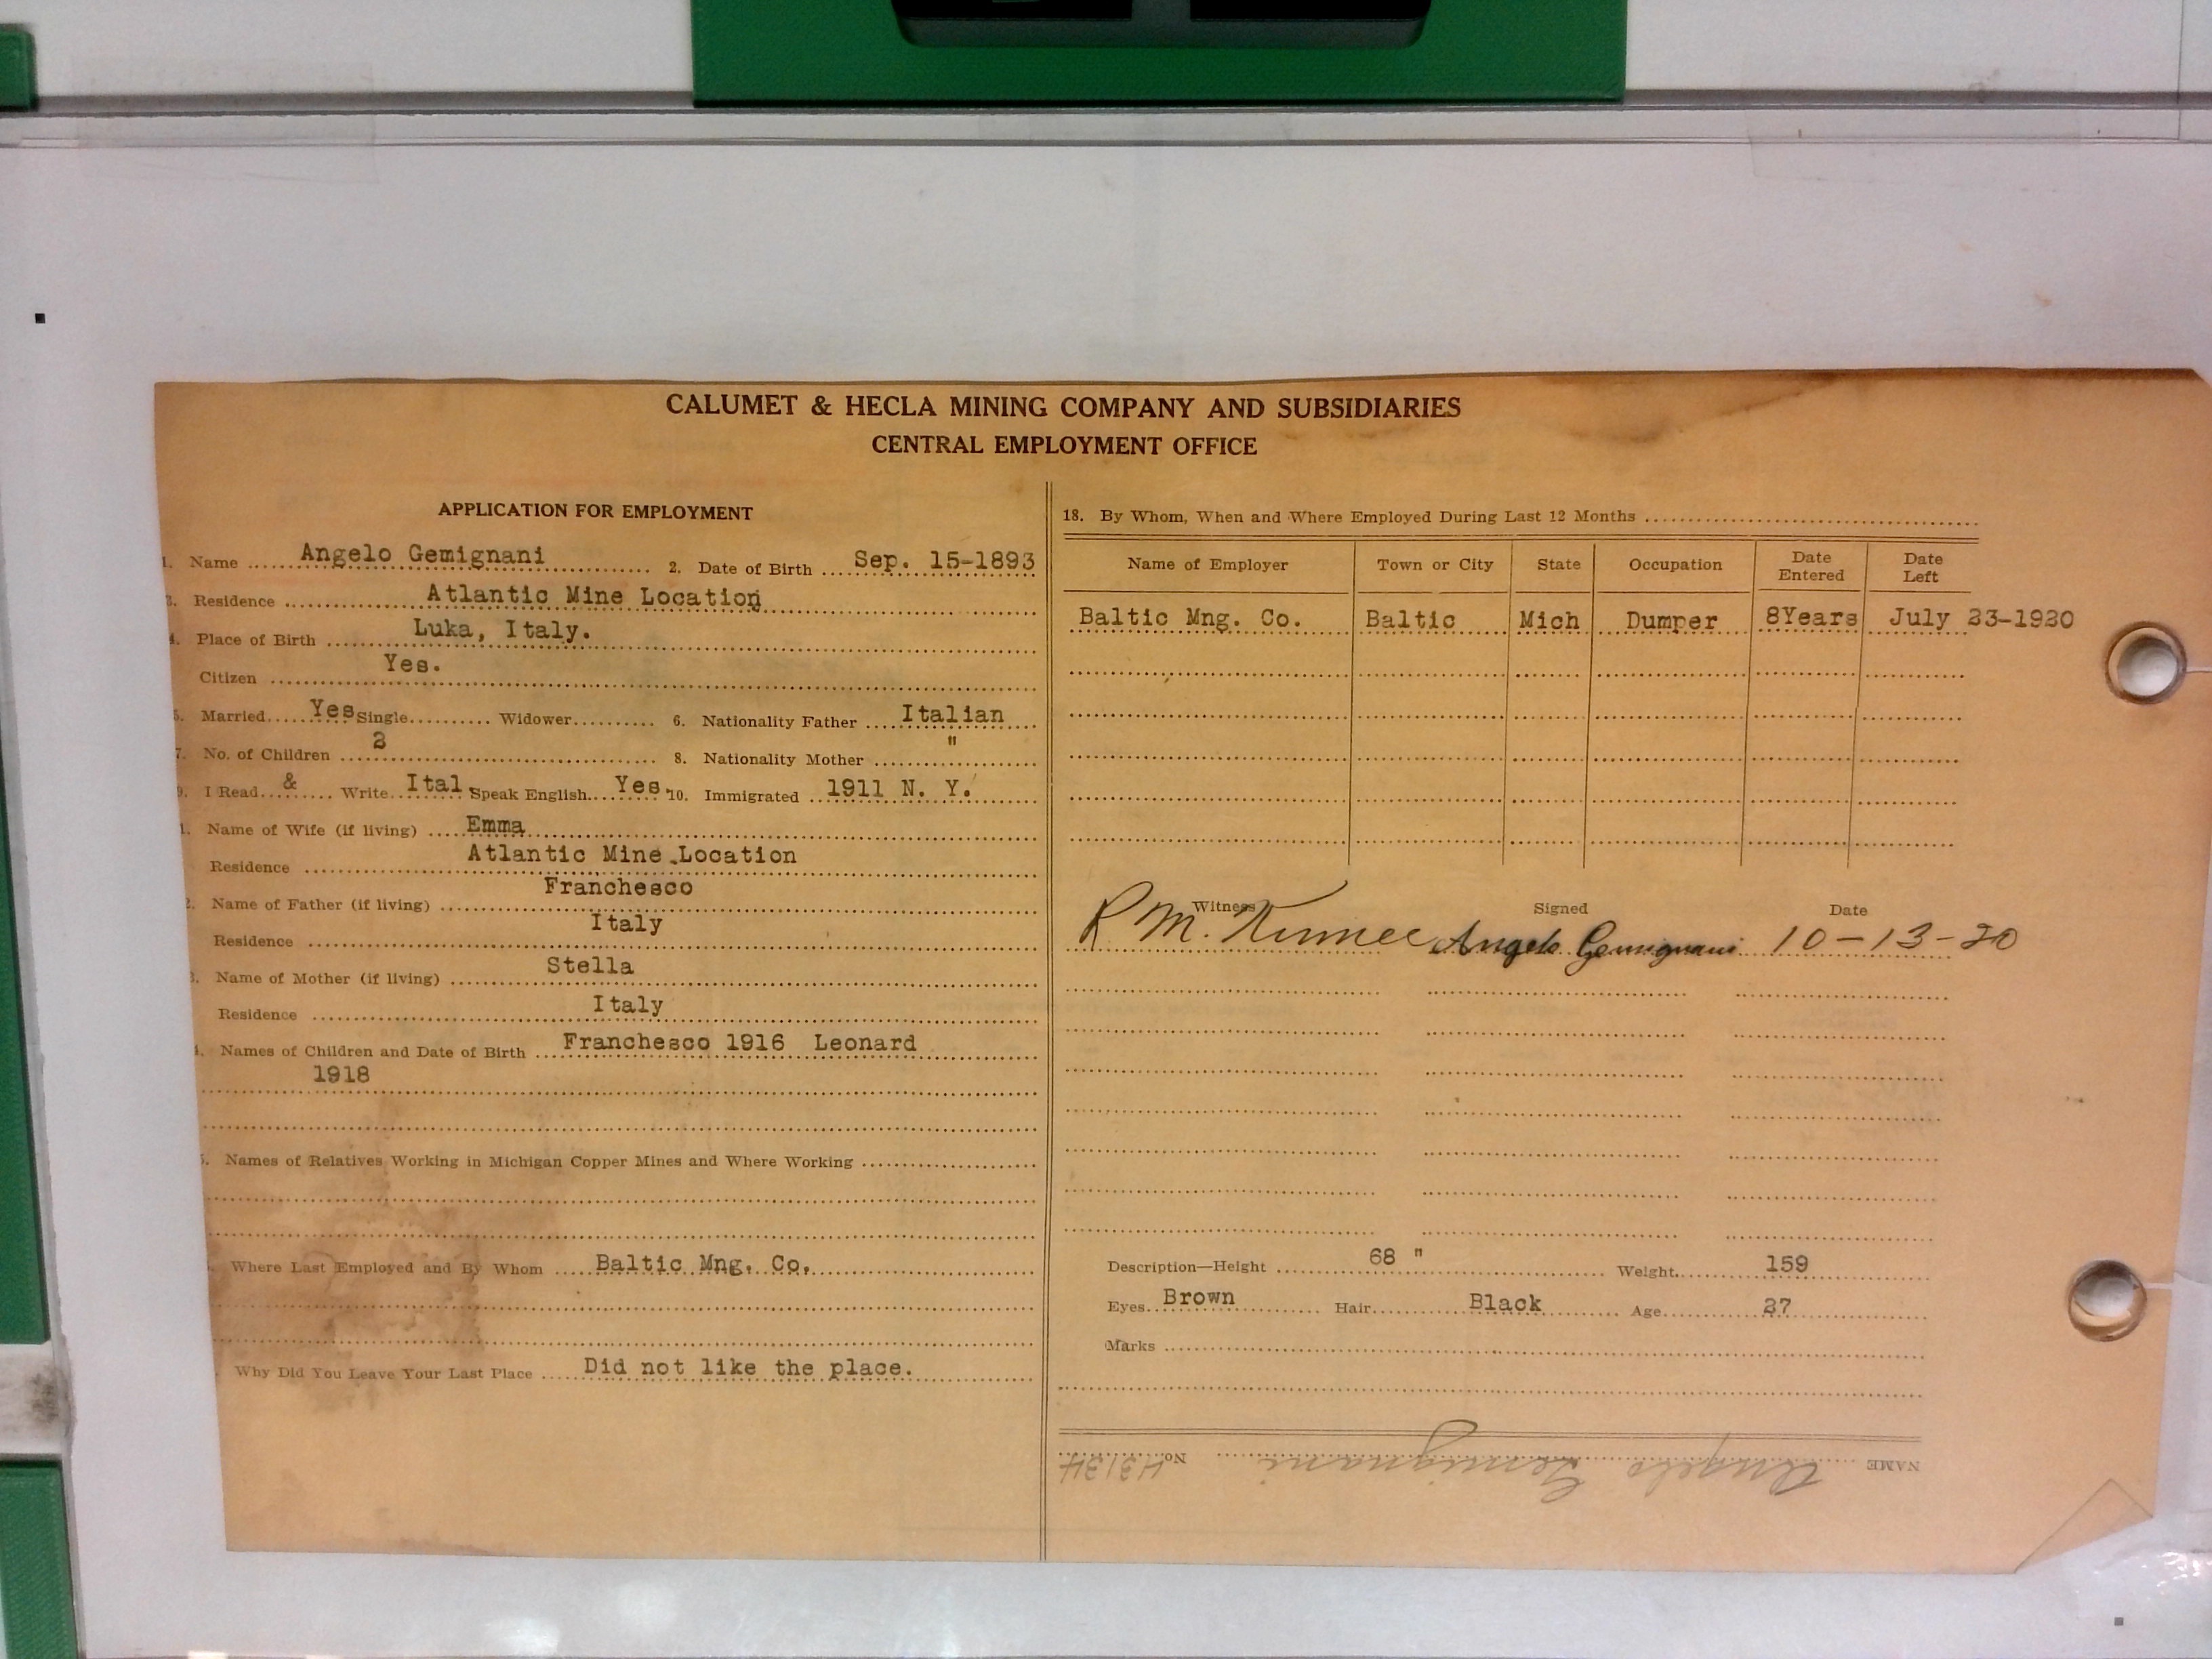 CALUMET & HECLA MINING COMPANY AND SUBSIDIARIES
CENTRAL EMPLOYMENT OFFICE
APPLICATION FOR EMPLOYMENT
1. Name Angelo Gemignani 2. Date of Birth Sep. 15-1893
3. Residence Atlantic Mine Location
4. Place of Birth Luka, Italy.
Citizen Yes.
5. Married Yes Single Widower 6. Nationality Father Italian
7. No. of Children 2 8. Nationality Mother "
9. I Read & Write Ital Speak English Yes. 10. Immigrated 1911 N. Y.
1. Name of Wife (if living) Emma
Residence Atlantic Mine Location
2. Name of Father (if living) Franchesco
Residence Italy
3. Name of Mother (if living) Stella
Residence Italy
4. Names of Children and Date of Birth Franchesco 1916 Leonard
1918
5. Names of Relatives Working in Michigan Copper Mines and Where Working
Where Last Employed and By Whom Baltic Mng. Co.
Why Did You Leave Your Last Place Did not like the place.
18. By Whom, When and Where Employed During Last 12 Months
Name of Employer Town or City State Occupation Date Entered Date Left
Baltic Mng. Co. Baltic Mich Dumper 8Years July 23-1920
Witness Signed Date
R M. Angelo Gemignani 10-13-20
Description—Height 68 " Weight 159
Eyes Brown Hair Black Age 27
Marks
NAME Angelo Gemignani No. 43134